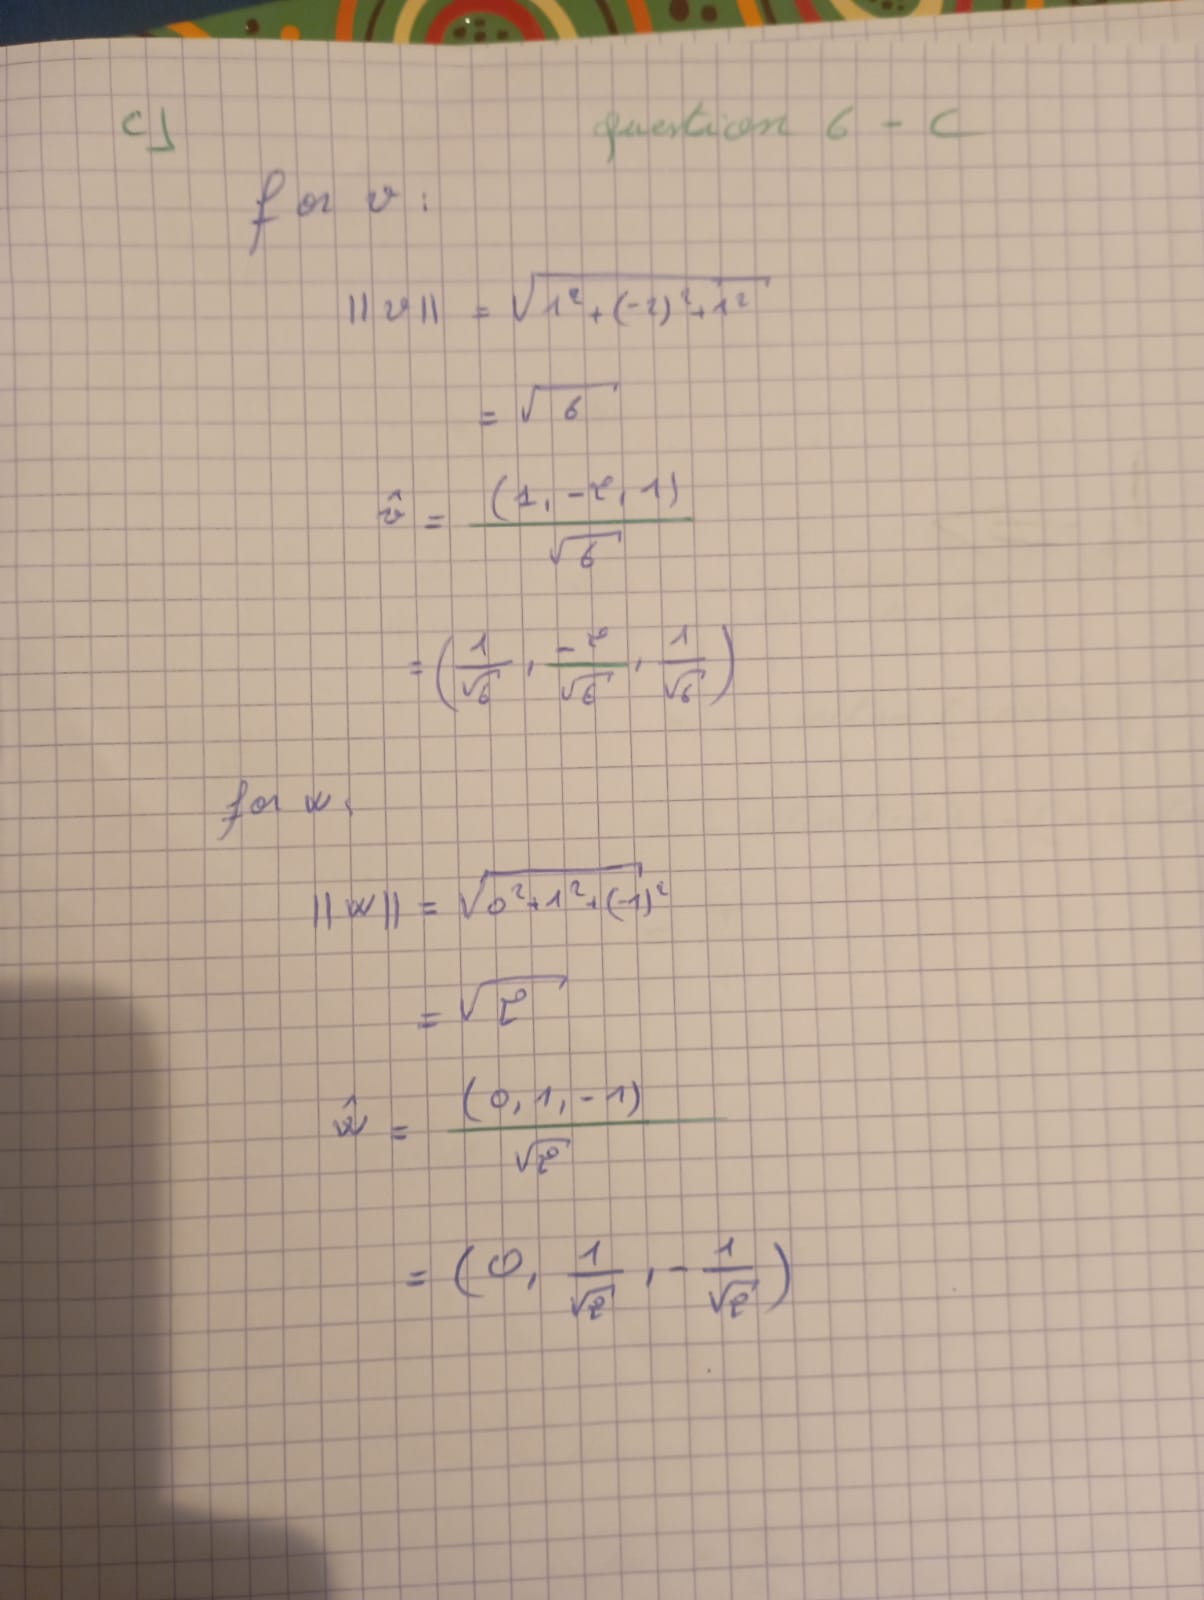 c) question 6 - C
for v:
||v|| = √(1² + (-2)² + 1²)
= √6
v̂ = (1, -2, 1) / √6
= (1/√6, -2/√6, 1/√6)
for w:
||w|| = √(0² + 1² + (-1)²)
= √2
ŵ = (0, 1, -1) / √2
= (0, 1/√2, -1/√2)